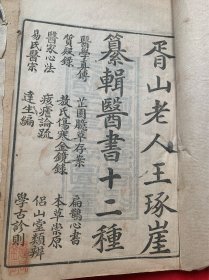 胥山老人王琢崖
纂輯醫書十二種
醫學真傳 芷園臆草存案 扁鵲心書
質疑錄 敖氏傷寒金鏡錄 本草崇原
醫家心法 痎瘧論疏 侶山堂類辯
易氏醫宗 達生編 學古診則